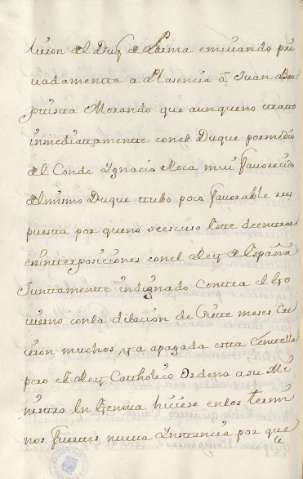 tieron del Duq de Parma emviando pri
vadamentte a Plasencia a Juan Bap
ptista Morando que aunque no tratto
inmediattamente con el Duque por medio
del Conde Ignacio Roca mui favorecido
del mismo Duque ttubo poco favorable res
puesta por que no se escuso
en intterposiciones con el Rey de España
Junttamente indignado Contra el Go
vierno con la dilacion de trece meses Cre
ieron muchos ya apagada estta Centtella
pero el Rey Cattholico Ordena a su Mi
nistro En Genova hiciese en los termi
nos fuerttes nueva Insttancia por que